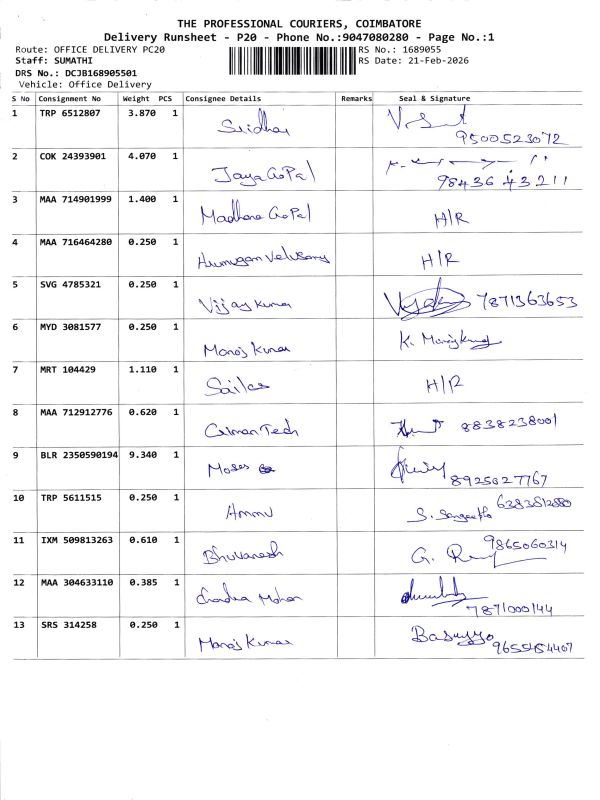 THE PROFESSIONAL COURIERS, COIMBATORE
Delivery Runsheet - P20 - Phone No.:9047080280 - Page No.:1
Route: OFFICE DELIVERY PC20 RS No.: 1689055
Staff: SUMATHI RS Date: 21-Feb-2026
DRS No.: DCJB168905501
Vehicle: Office Delivery
S No Consignment No Weight PCS Consignee Details Remarks Seal & Signature
1 TRP 6512807 3.870 1 Sridhar
9500523072
2 COK 24393901 4.070 1 JayaGoPal
98436 43211
3 MAA 714901999 1.400 1 Madhana GoPal H/R
4 MAA 716464280 0.250 1 Arumugan Velusamy H/R
5 SVG 4785321 0.250 1 Vijay Kumar 7871363653
6 MYD 3081577 0.250 1 Manoj Kumar K. Manojkumar
7 MRT 104429 1.110 1 Sailas H/R
8 MAA 712912776 0.620 1 Tech 8838238001
9 BLR 2350590194 9.340 1 Moses
8925027767
10 TRP 5611515 0.250 1 Ammu S. Sangeetha
11 IXM 509813263 0.610 1 Bhuvanesh 9865060314
12 MAA 304633110 0.385 1 Chandra Mohan
7871000144
13 SRS 314258 0.250 1 Manoj Kumar